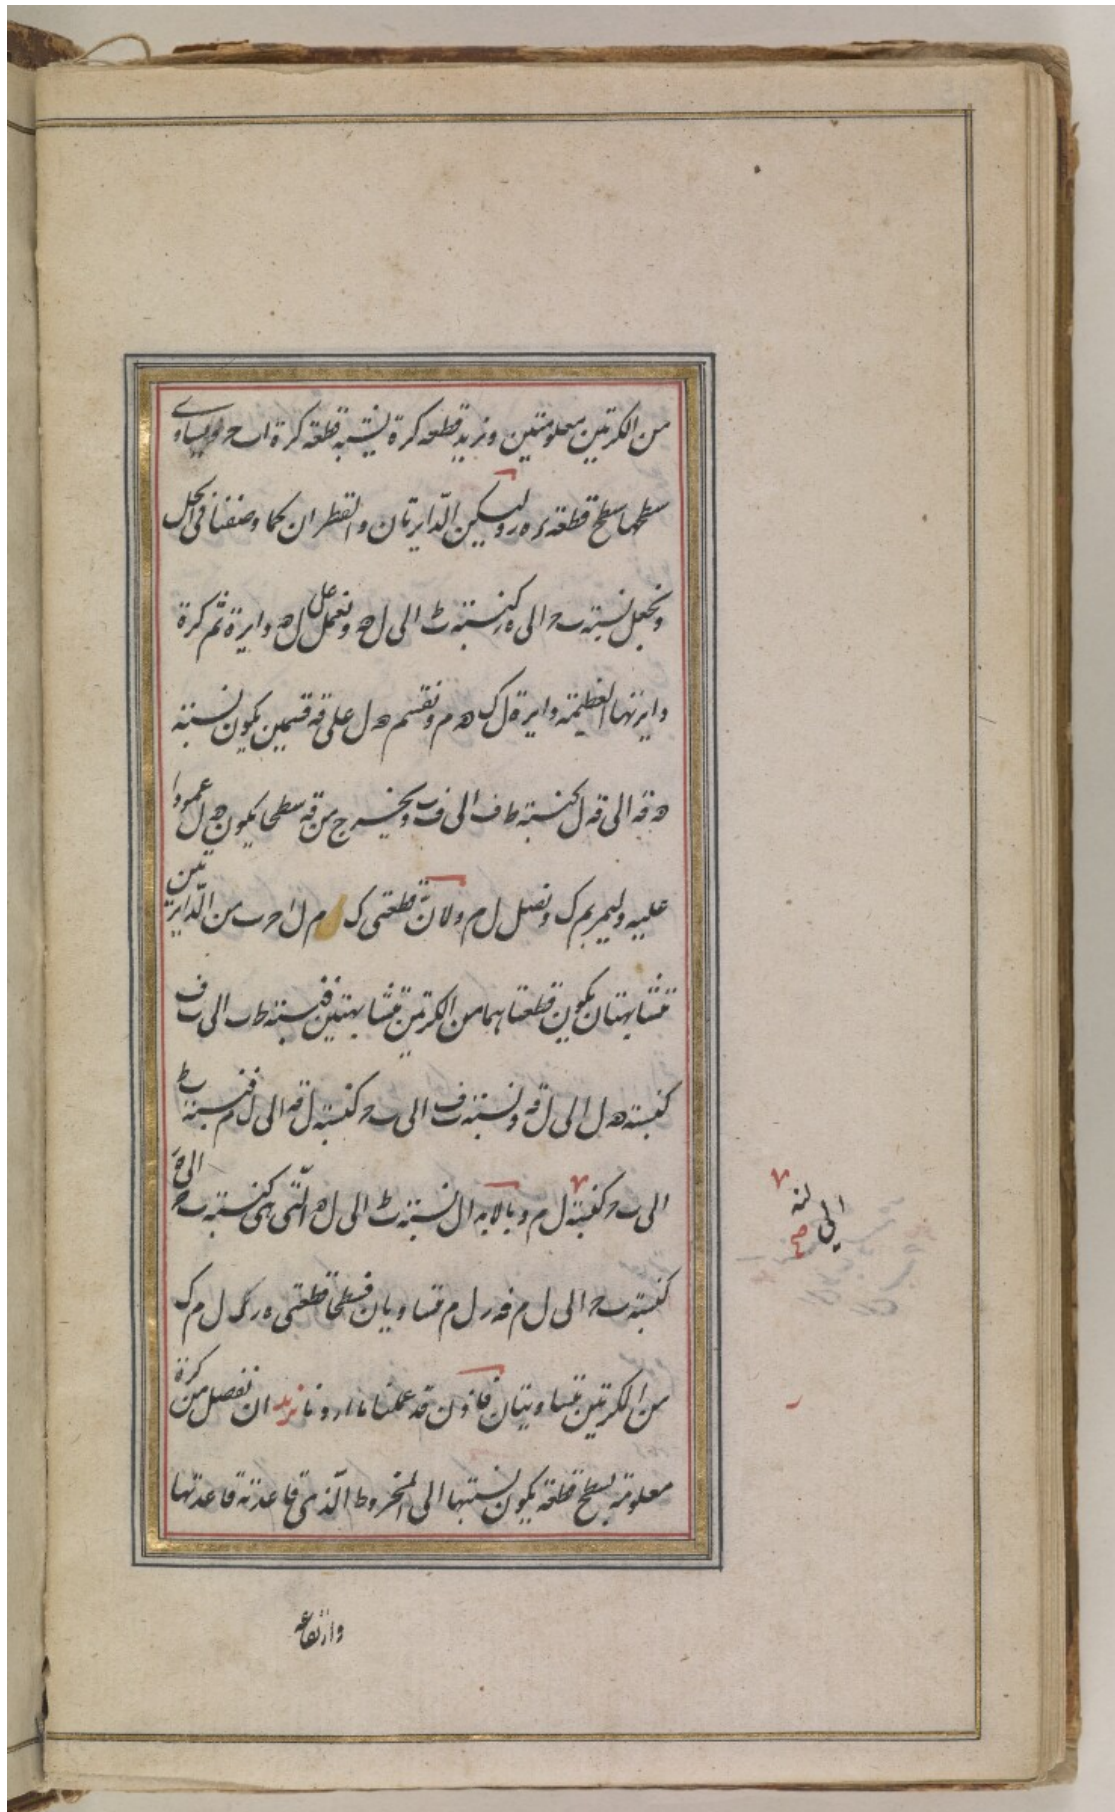 من الكرتين معلومتين ونريد قطعه كرة يشبه قطعة كرة ا ب ح ويساوى
سطحها سطح قطعة ء ه ر وليكن الدايرتان والقطران كما وصفنا فى الحل
ونجعل نسبة ب ح الى ه ر كنسبة ب ط الى ل ه ونعمل على ل ه دايرة ثم كرة
دايرتها العظيمة دايرة ل ك ه م ونقسم ه ل على قه قسمين يكون نسبة
ه قه الى قه ل كنسبة ط ف الى ف ب ويخرج من قه سطحا يكون ه ل عمودا
عليه وليمر بم ك ونصل ل م ولان قطعتى ك ل م ا ح ب من الدايرتين
متشابهتان يكون قطعتاهما من الكرتين متشابهتين فنسبة ط ب الى ب ف
كنسبة ه ل الى ل قه ونسبة ف ب الى ب ح كنسبة ل قه الى ل م فنسبة ب ط
الى ب ح كنسبة ل م وبالابدال نسبة ب ط الى ل ه التى هى كنسبة ب ح الى ه ر
كنسبة ب ح الى ل م فه ر ل م متساويان فسطحا قطعتى ء ه ر ك ل م
من الكرتين متساويتان فاذن قد عملنا ما اردنا نريد ان نفصل من كرة
معلومة بسطح قطعة يكون نسبتها الى المخروط الذى قاعدته قاعدتها
وارتفاعه
الى
صح